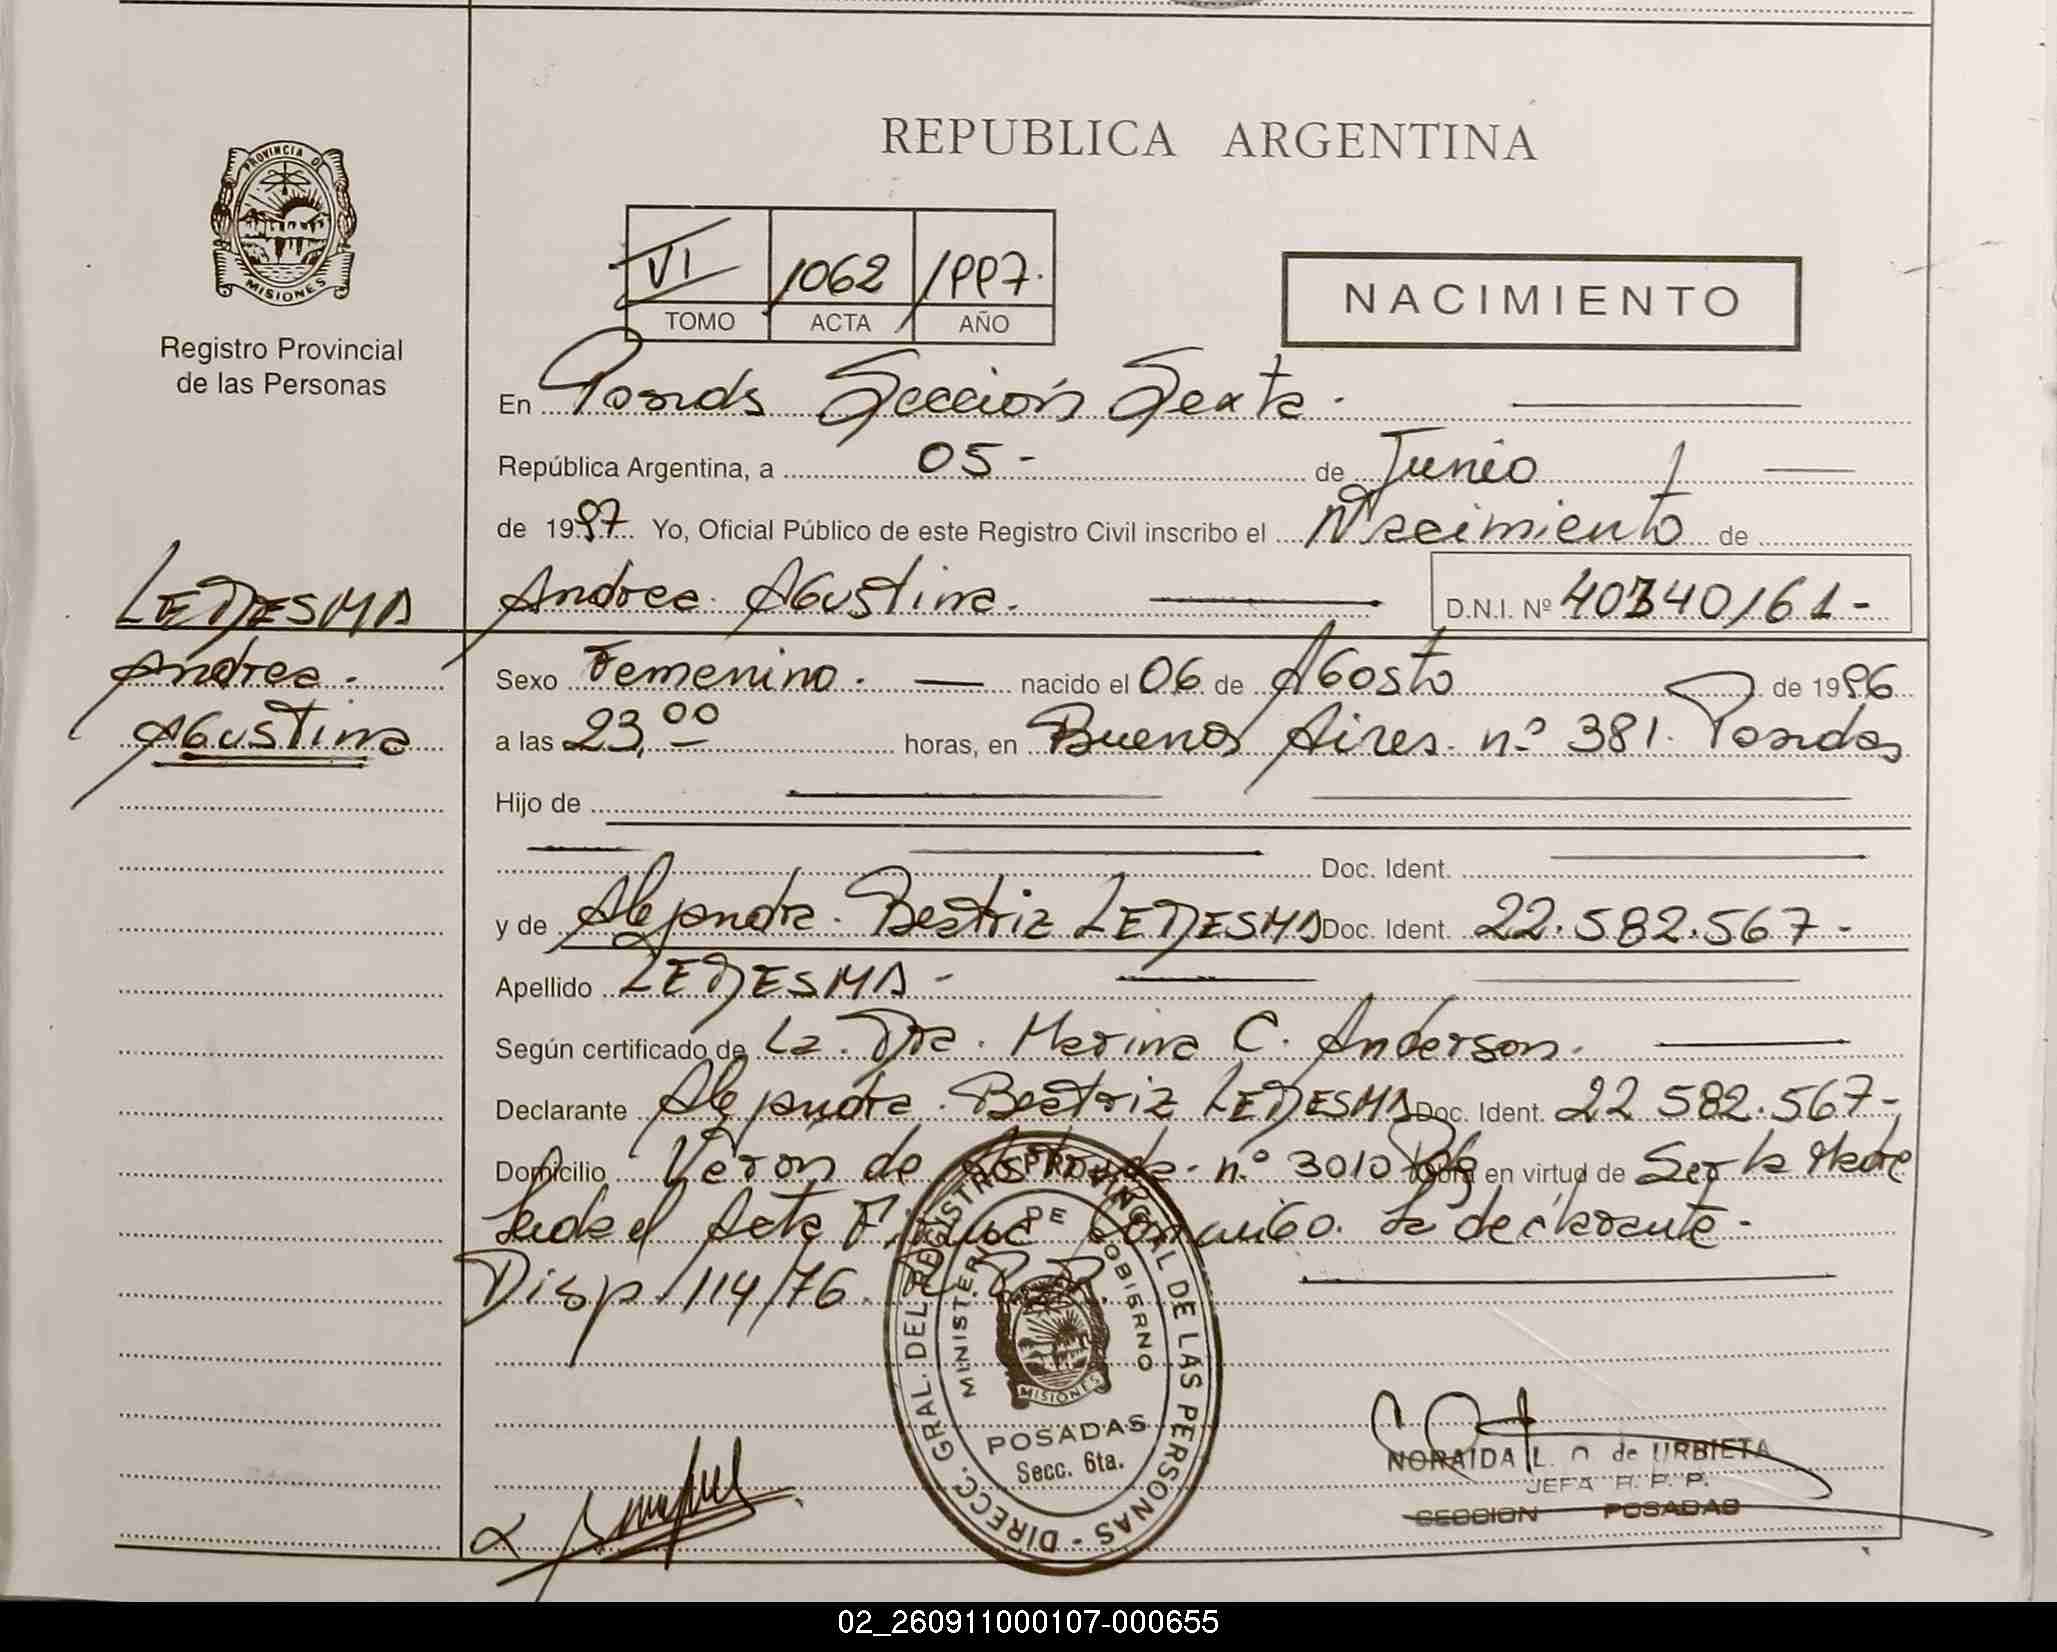 REPUBLICA ARGENTINA
PROVINCIA D
MISIONES
Registro Provincial
de las Personas
VI 1062 1997.
TOMO ACTA AÑO
NACIMIENTO
En Posadas Sección Sexta.
República Argentina, a 05- de Junio
de 1997. Yo, Oficial Público de este Registro Civil inscribo el Nacimiento de
LEDESMA Andrea Agustina. D.N.I. Nº 40340161-
Andrea. Sexo Femenino. nacido el 06 de Agosto de 1996
Agustina a las 23,00 horas, en Buenos Aires. nº 381. Posadas
Hijo de
Doc. Ident.
y de Alejandra. Beatriz LEDESMA Doc. Ident. 22.582.567-
Apellido LEDESMA-
Según certificado de La. Dra. Marina C. Anderson.
Declarante Alejandra. Beatriz LEDESMA Doc. Ident. 22 582.567-
Domicilio Veron de n.º 3010 Obra en virtud de Ser la Madre
el Acta Conmigo. La declarante-
Disp. 114/76.
DIRECC. GRAL. DEL REGISTRO PROVINCIAL DE LAS PERSONAS -
MINISTERIO DE GOBIERNO
MISIONES
POSADAS
Secc. 6ta.
NORAIDA L. O. de URBIETA
JEFA R. P. P.
SECCION POSADAS
02_260911000107-000655